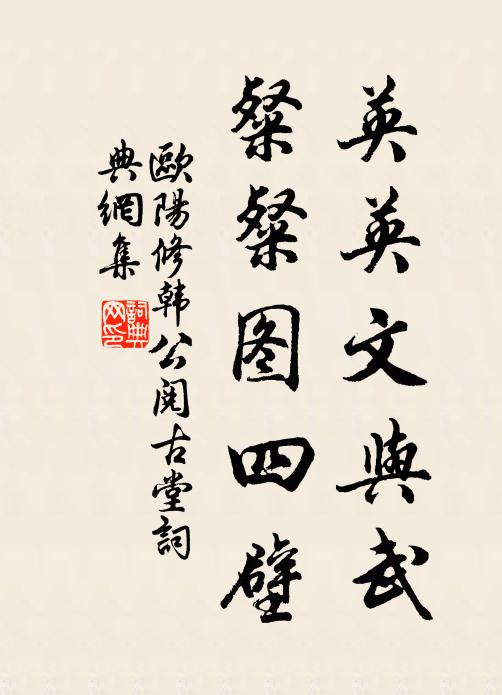 英英文與武
粲粲图四壁
歐陽修韩公閱古堂詞
典網集
詞典
网印